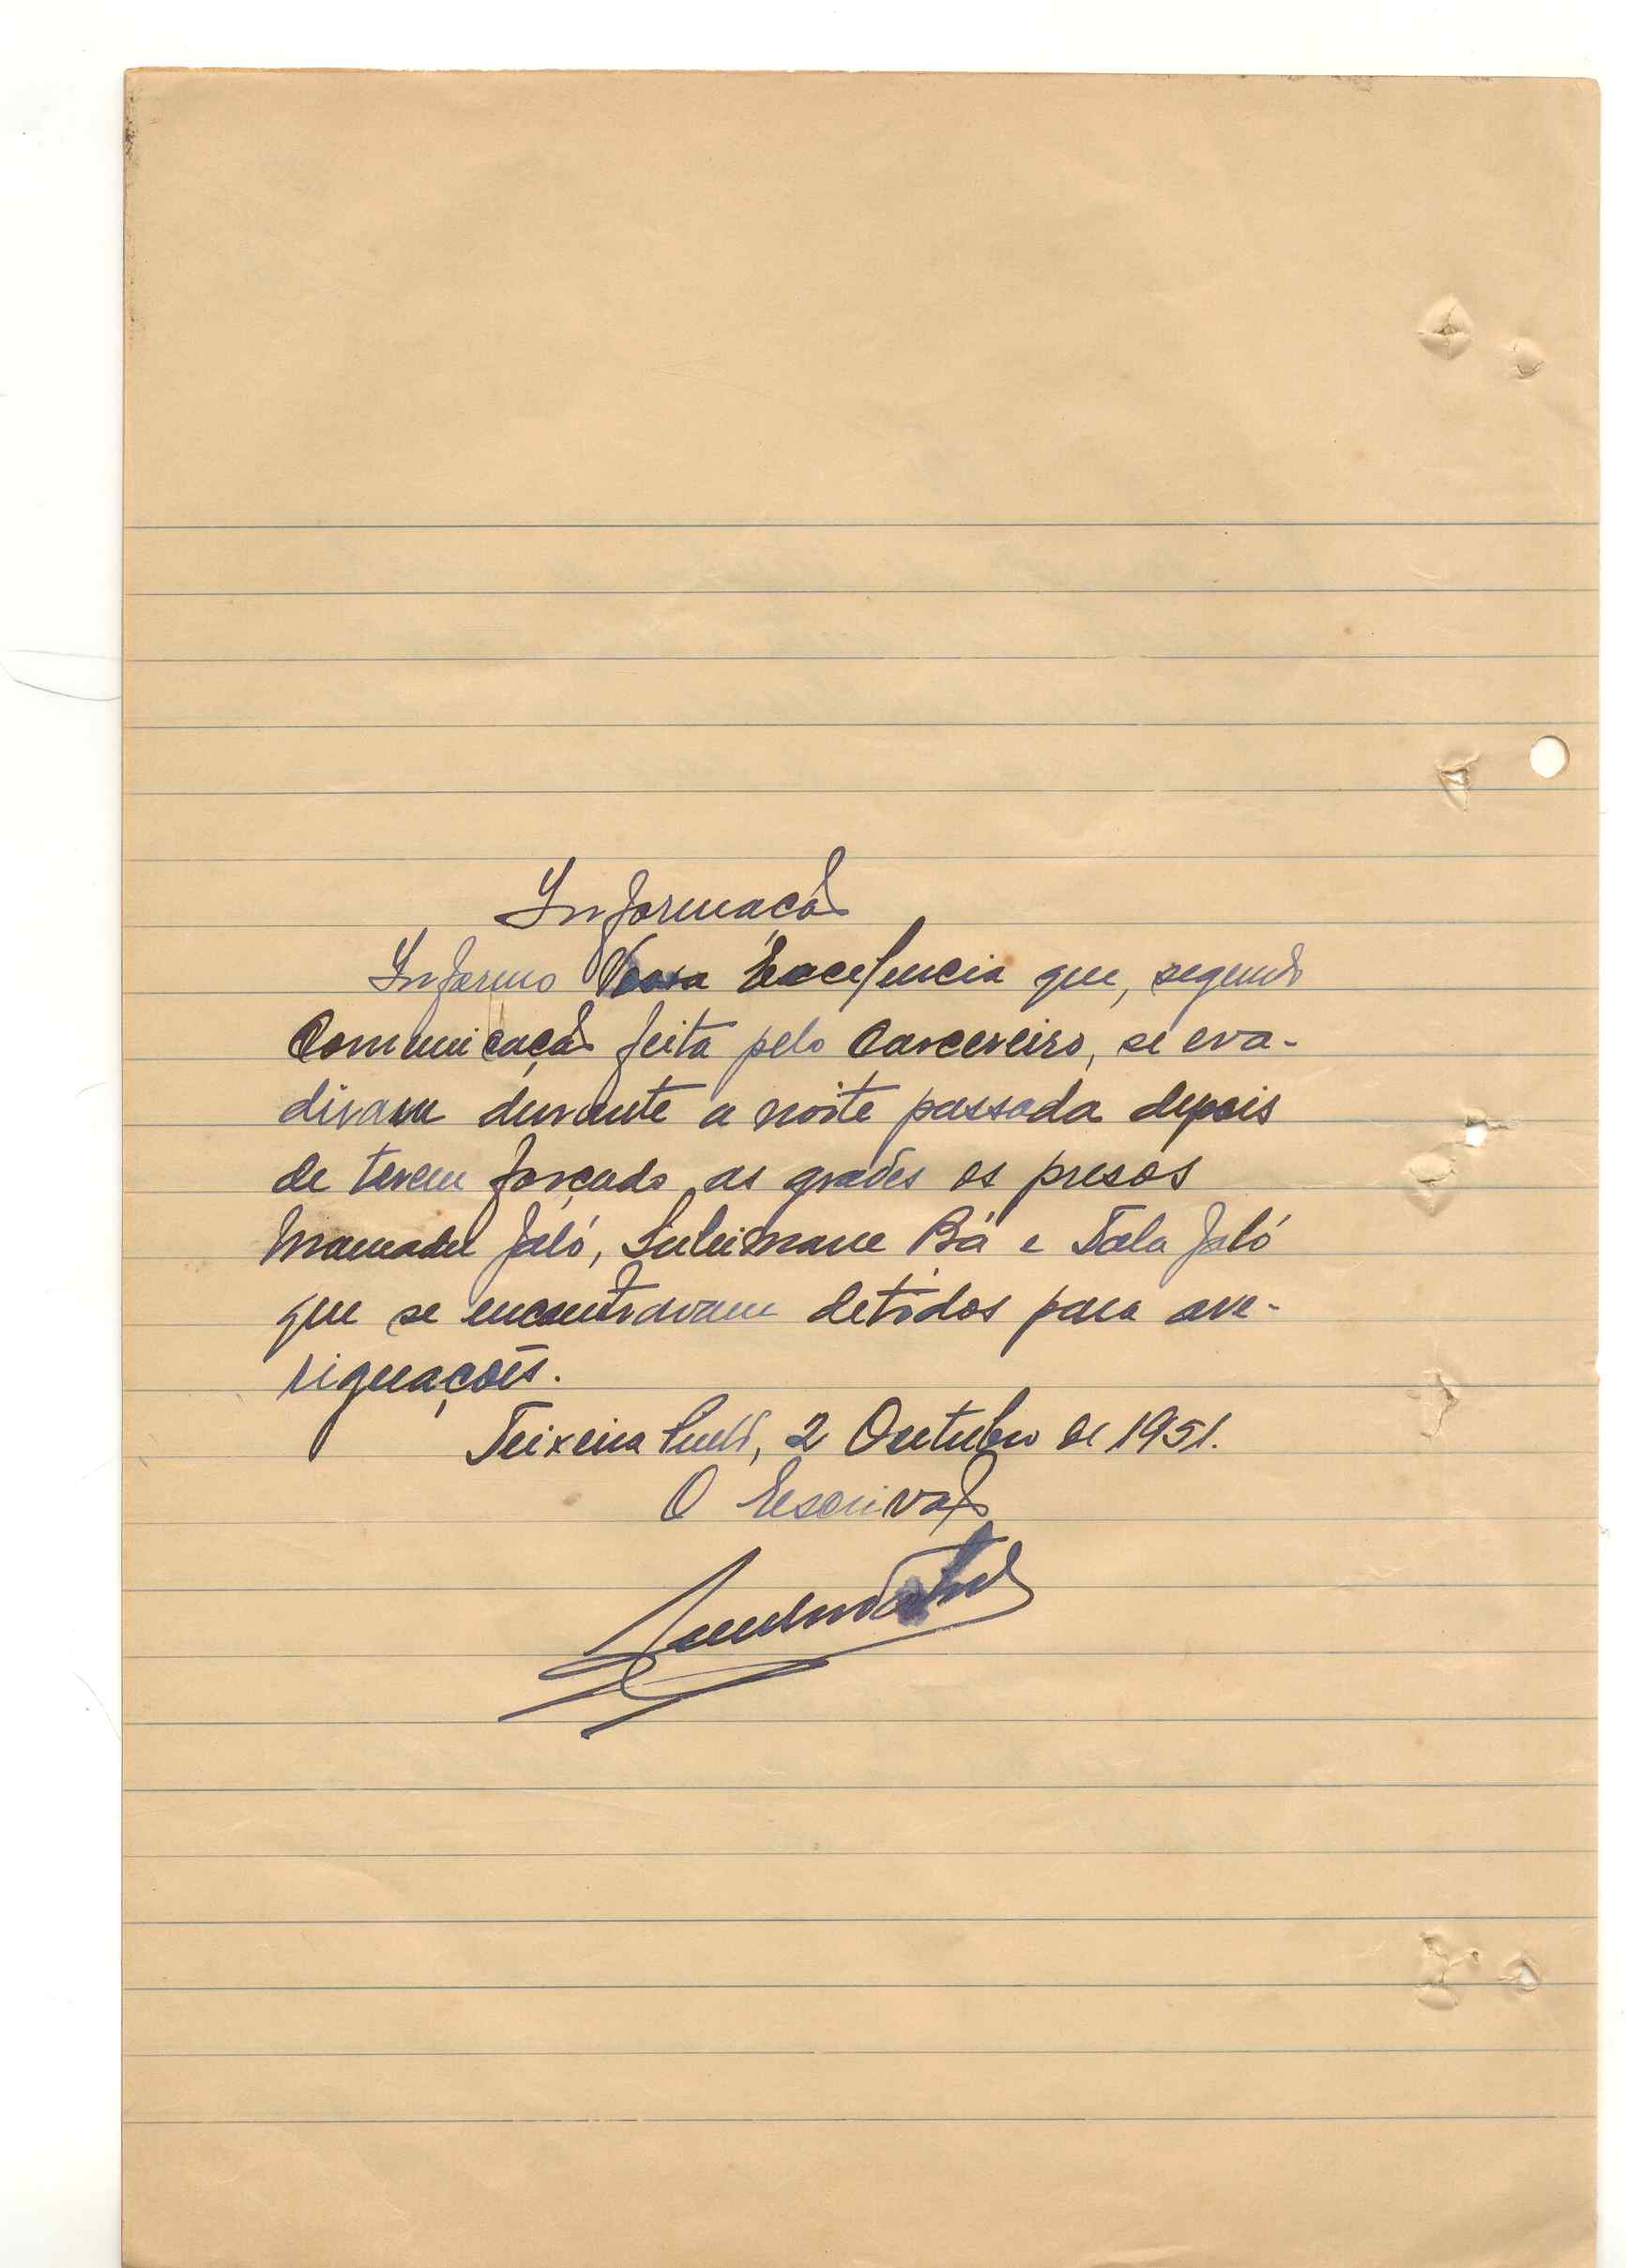 Informação
Informo Vossa Excelencia que, segundo
Comunicação feita pelo Carcereiro, se eva-
diram durante a noite passada depois
de terem forçado as grades os presos
Mamadu Jaló, Suleimane Bá e Tala Jaló
que se encontravam detidos para ave-
riguações.
Teixeira Pinto, 2 Outubro de 1951.
O Escrivão